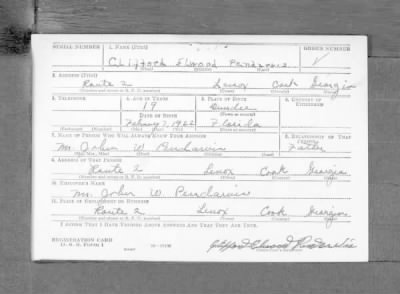 SERIAL NUMBER 1. NAME (Print) ORDER NUMBER
Clifford Elwood Pendarvis
(First) (Middle) (Last)
2. ADDRESS (Print)
Route 2 Lenox Cook Georgia
(Number and street or R. F. D. number) (Town) (County) (State)
3. TELEPHONE 4. AGE IN YEARS 5. PLACE OF BIRTH 6. COUNTRY OF CITIZENSHIP
19 Dundee
DATE OF BIRTH (Town or county)
February 7, 1922 Florida
(Exchange) (Number) (Mo.) (Day) (Yr.) (State or country)
7. NAME OF PERSON WHO WILL ALWAYS KNOW YOUR ADDRESS 8. RELATIONSHIP OF THAT PERSON
Mr. John W Pendarvis Father
(Mr., Mrs., Miss) (First) (Middle) (Last)
9. ADDRESS OF THAT PERSON
Route 2 Lenox Cook Georgia
(Number and street or R. F. D. number) (Town) (County) (State)
10. EMPLOYER'S NAME
Mr. John W. Pendarvis
11. PLACE OF EMPLOYMENT OR BUSINESS
Route 2 Lenox Cook Georgia
(Number and street or R. F. D. number) (Town) (County) (State)
I AFFIRM THAT I HAVE VERIFIED ABOVE ANSWERS AND THAT THEY ARE TRUE.
REGISTRATION CARD
D. S. S. Form 1 Clifford Elwood Pendarvis